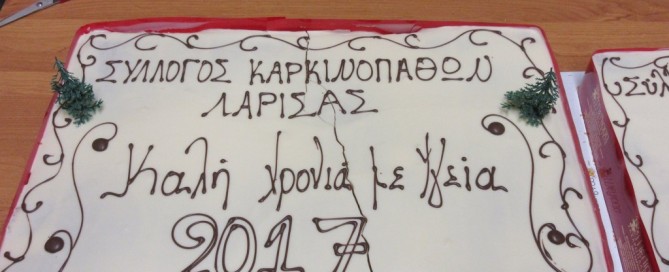 ΣΥΛΛΟΓΟΣ ΚΑΡΚΙΝΟΠΑΘΩΝ
ΛΑΡΙΣΑΣ
Καλή χρονιά με Υγεία
2017